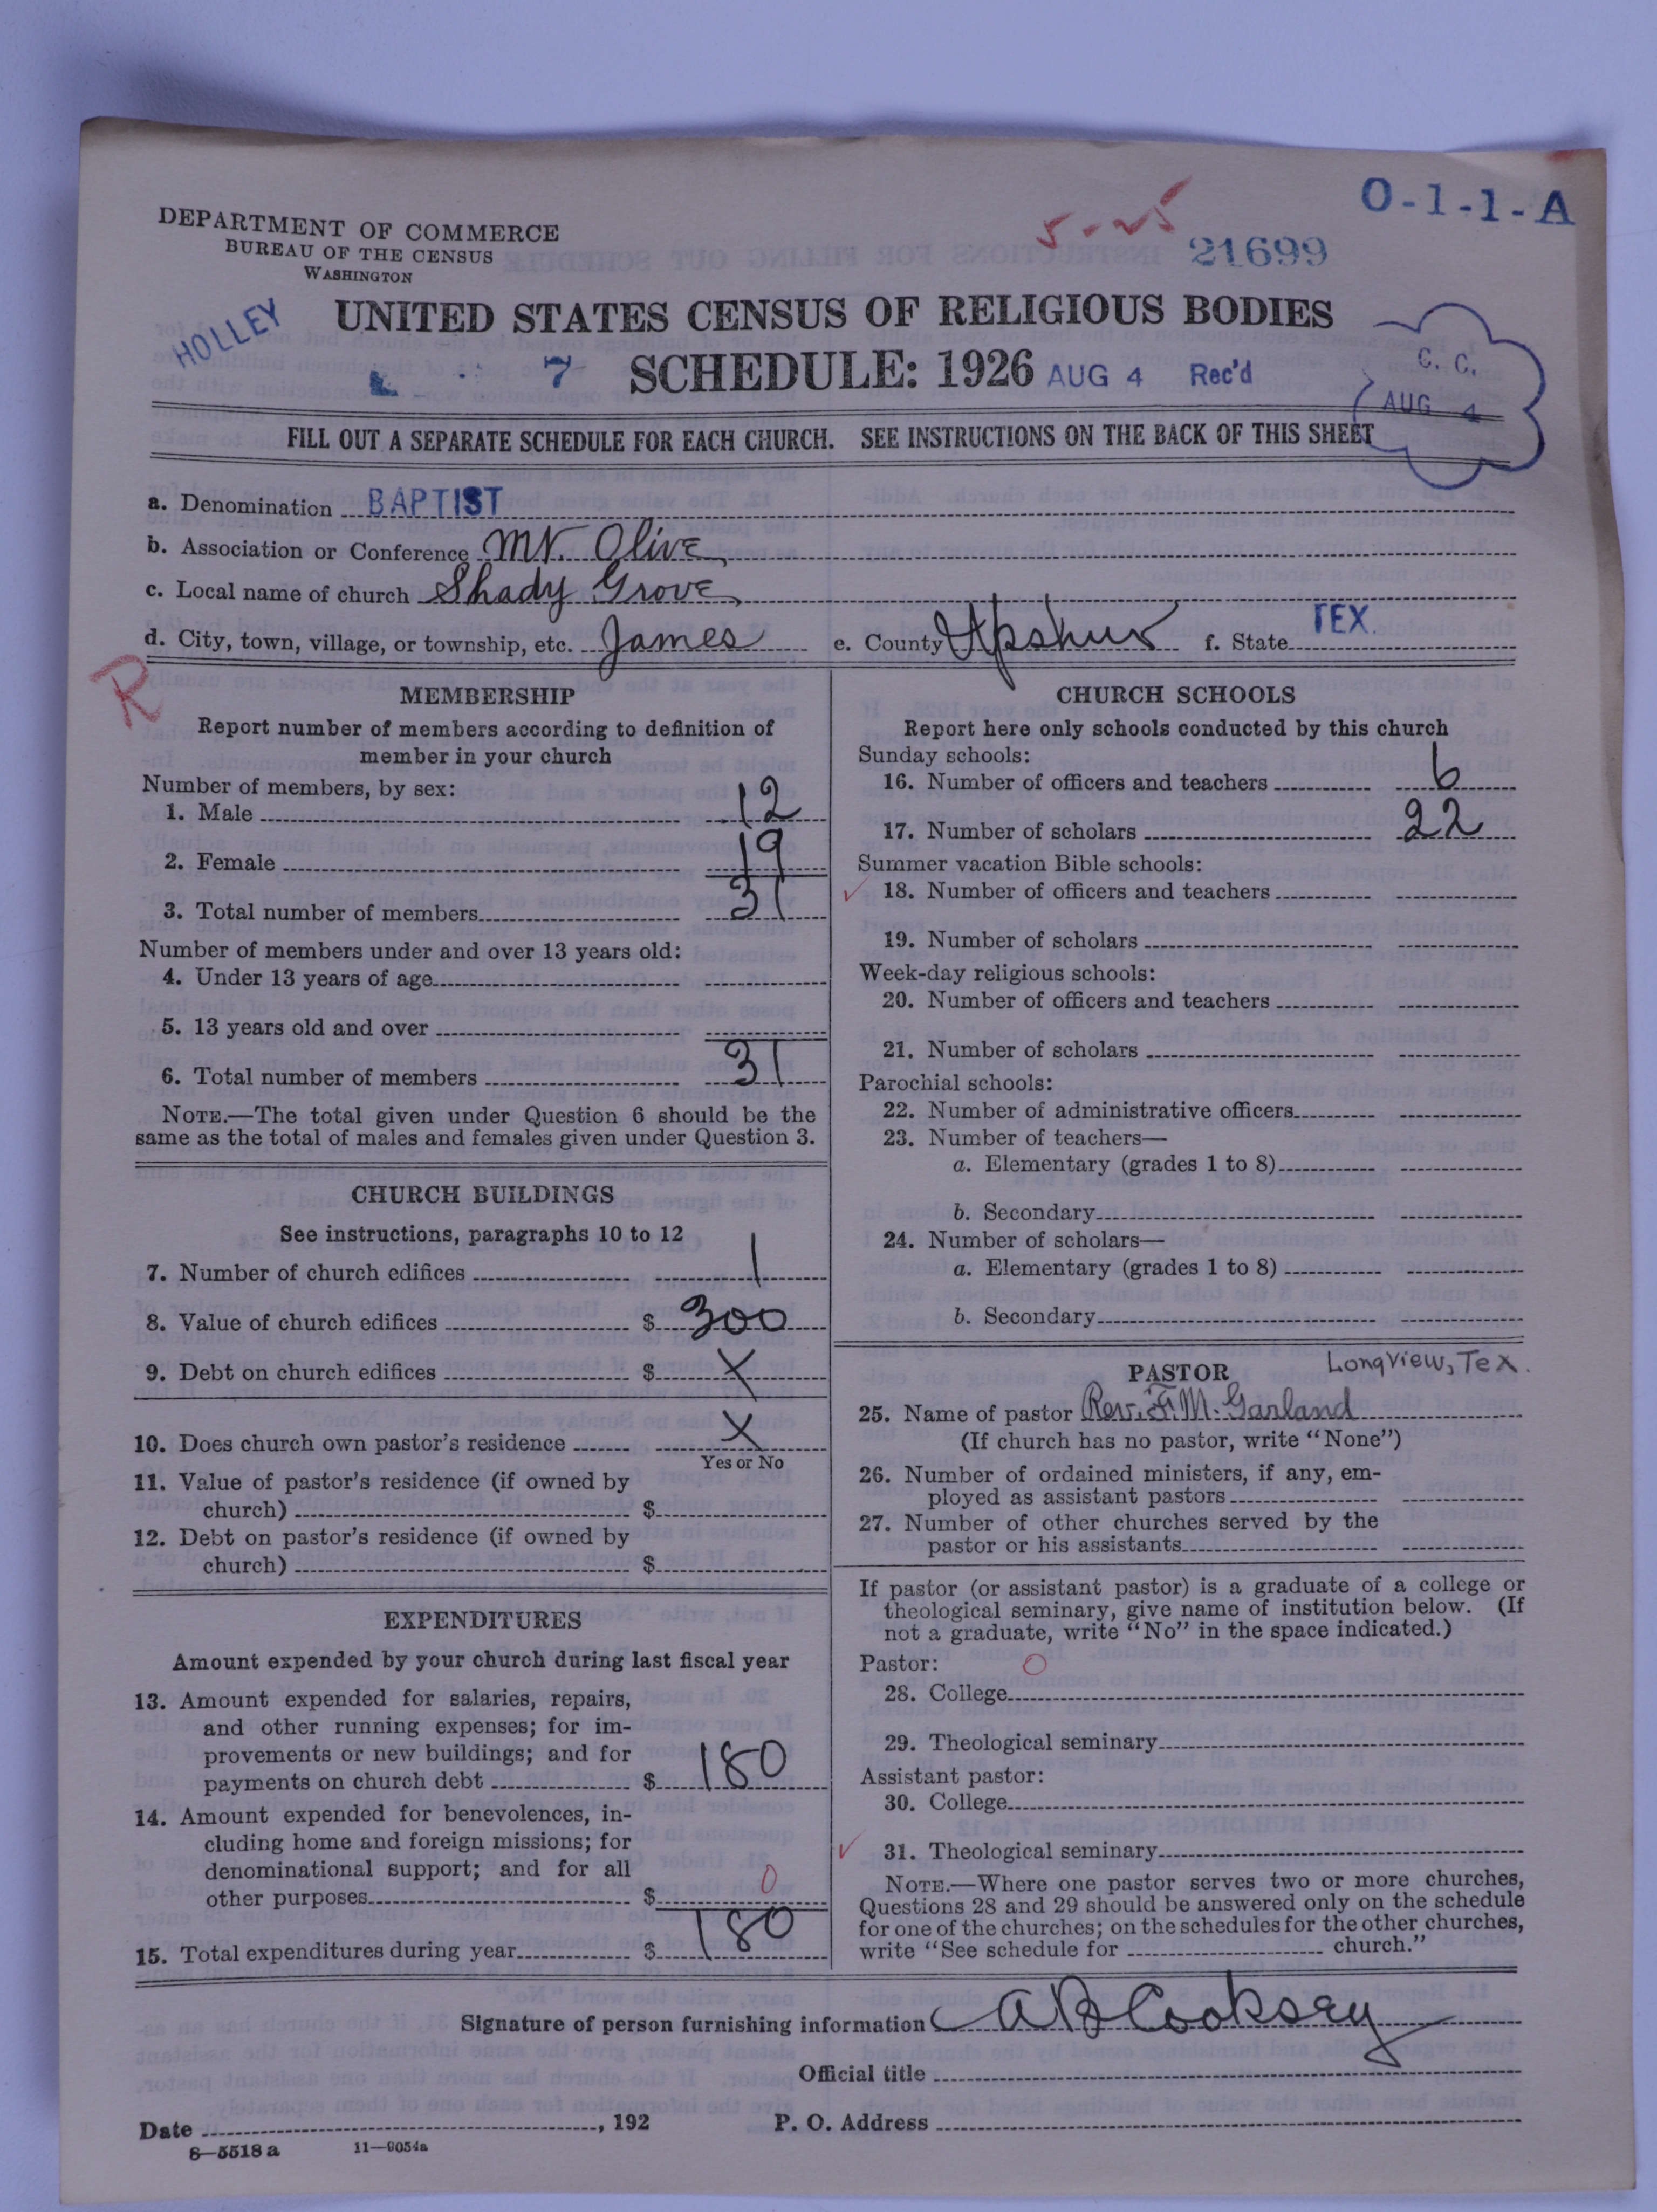 O-1-1-A
5-25
21699
DEPARTMENT OF COMMERCE
BUREAU OF THE CENSUS
WASHINGTON
HOLLEY
UNITED STATES CENSUS OF RELIGIOUS BODIES
7 SCHEDULE: 1926 AUG 4 Rec'd
C. C.
AUG 4
FILL OUT A SEPARATE SCHEDULE FOR EACH CHURCH. SEE INSTRUCTIONS ON THE BACK OF THIS SHEET
a. Denomination BAPTIST
b. Association or Conference Mt. Olive
c. Local name of church Shady Grove
d. City, town, village, or township, etc. James e. County Upshur f. State TEX.
R
MEMBERSHIP
Report number of members according to definition of
member in your church
Number of members, by sex:
1. Male 12
2. Female 19
3. Total number of members 31
Number of members under and over 13 years old:
4. Under 13 years of age
5. 13 years old and over
6. Total number of members 31
NOTE.—The total given under Question 6 should be the
same as the total of males and females given under Question 3.
CHURCH BUILDINGS
See instructions, paragraphs 10 to 12
7. Number of church edifices 1
8. Value of church edifices $ 300
9. Debt on church edifices $ X
10. Does church own pastor's residence X
Yes or No
11. Value of pastor's residence (if owned by
church) $
12. Debt on pastor's residence (if owned by
church) $
EXPENDITURES
Amount expended by your church during last fiscal year
13. Amount expended for salaries, repairs,
and other running expenses; for im-
provements or new buildings; and for
payments on church debt $ 180
14. Amount expended for benevolences, in-
cluding home and foreign missions; for
denominational support; and for all
other purposes $ 0
15. Total expenditures during year $ 180
CHURCH SCHOOLS
Report here only schools conducted by this church
Sunday schools:
16. Number of officers and teachers 6
17. Number of scholars 22
Summer vacation Bible schools:
18. Number of officers and teachers
19. Number of scholars
Week-day religious schools:
20. Number of officers and teachers
21. Number of scholars
Parochial schools:
22. Number of administrative officers
23. Number of teachers—
a. Elementary (grades 1 to 8)
b. Secondary
24. Number of scholars—
a. Elementary (grades 1 to 8)
b. Secondary
PASTOR Longview, Tex.
25. Name of pastor Rev. F. M. Garland
(If church has no pastor, write "None")
26. Number of ordained ministers, if any, em-
ployed as assistant pastors
27. Number of other churches served by the
pastor or his assistants
If pastor (or assistant pastor) is a graduate of a college or
theological seminary, give name of institution below. (If
not a graduate, write "No" in the space indicated.)
Pastor: O
28. College
29. Theological seminary
Assistant pastor:
30. College
31. Theological seminary
NOTE.—Where one pastor serves two or more churches,
Questions 28 and 29 should be answered only on the schedule
for one of the churches; on the schedules for the other churches,
write "See schedule for church."
Signature of person furnishing information A B Cooksey
Official title
Date , 192 P. O. Address
8—5518 a 11—9054a